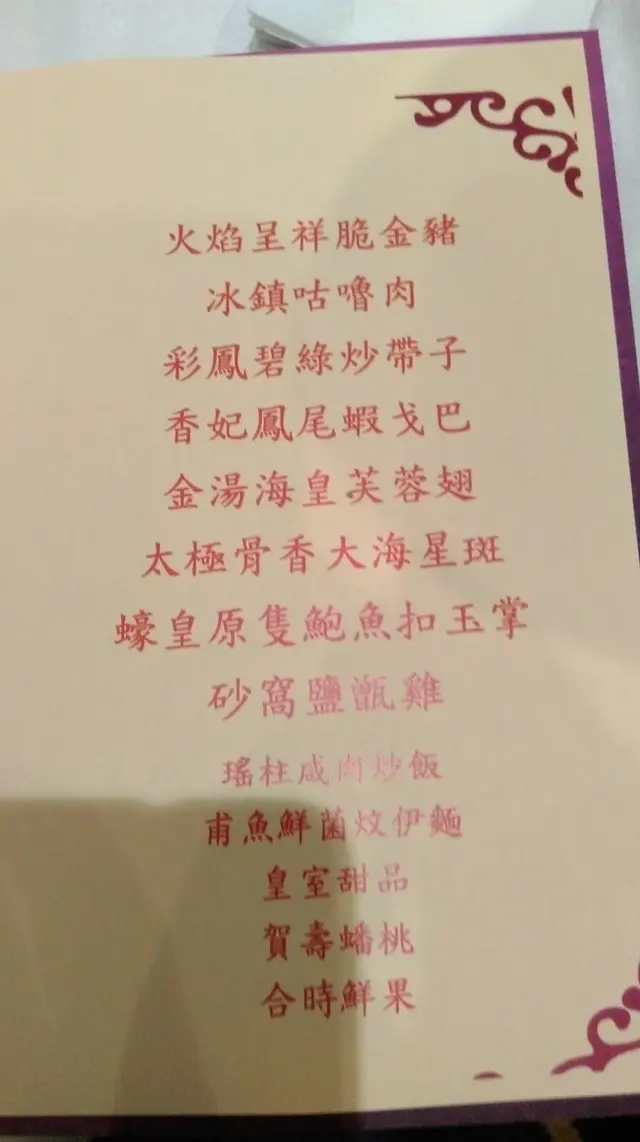 火焰呈祥脆金豬
冰鎮咕嚕肉
彩鳳碧綠炒帶子
香妃鳳尾蝦戈巴
金湯海皇芙蓉翅
太極骨香大海星斑
蠔皇原隻鮑魚扣玉掌
砂窩鹽甑雞
瑤柱咸肉炒飯
甫魚鮮菌炆伊麵
皇室甜品
賀壽蟠桃
合時鮮果